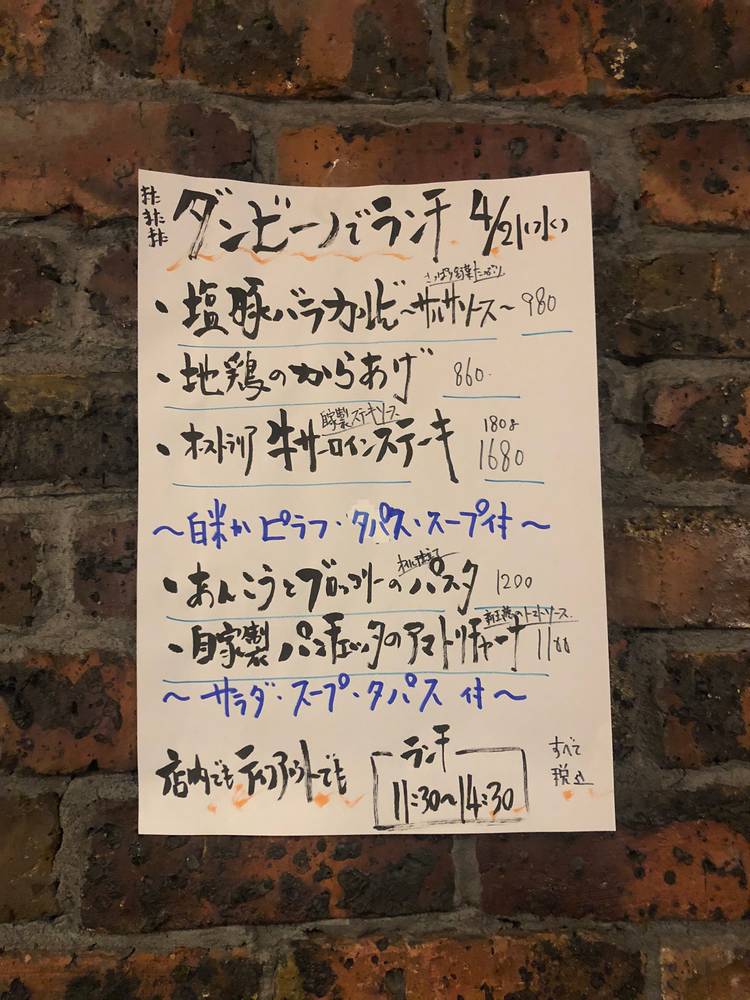 ダンビーノでランチ 4/21(水)
さっぱり野菜たっぷり
・塩豚バラカルビ～サルサソース～ 980
・地鶏のからあげ 860.
自家製ステーキソース
・オーストラリア 牛サーロインステーキ 180g 1680
～白米かピラフ・タパス・スープ付～
・あんこうとブロッコリーのパスタ 1200
新玉葱のトマトソース
・自家製 パンチェッタのアマトリチャーナ 1100
～サラダ・スープ・タパス 付～
店内でもテイクアウトでも
ランチ
11:30～14:30
すべて
税込